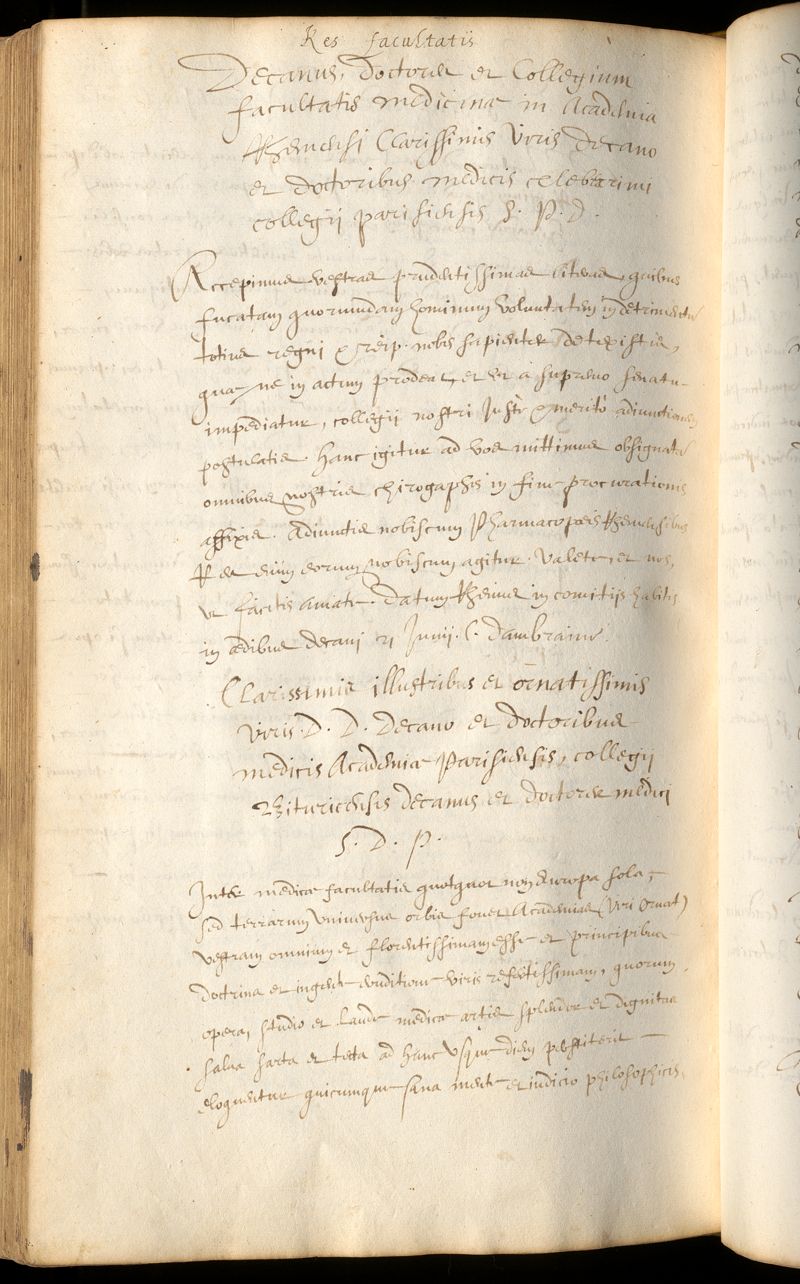 Res facultatis
Decanus, doctores et Collegium
facultatis medicinae in Academia
Rhemensi Clarissimis Viris decano
et doctoribus medicis celeberrimi
collegij parisiensis S. P. D.
Accepimus vestras prudentissimas literas, quibus
fucatam quorumdam hominum voluntatem in detrimentum
totius regni & reip. nobis sapienter detexistis,
quae ne in actum prodeat, et ut a supremo senatu
impediatur, collegij nostri justè & meritò adiunctionem
postulatis. Hanc igitur ad vos mittimus obsignatam
omnibus nostris chirogaphis in fine procurationis
affixis. Adiunctis nobiscum Pharmacopoeis Rhemensibus
Res enim eorum nobiscum agitur. Valete, et nos,
ut facitis amate. Datum Rhemis in comitijs habitis
in aedibus decani 21 Junij. C. dambraine.
Clarissimis illustribus et ornatissimis
Viris. D. D. Decano et doctoribus
medicis Academiae Parisiensis, collegij
Bituricensis decanus et doctores medici
S. D. P.
Inter medicae facultatis quotquot non Europa sola,
sed terrarum universus orbis fovet Academias (Viri Ornat)
vestram omnium et florentissimam esse et principibus
doctrina et ingenti eruditione viris refertissimam, quorum
opera, studio et laude medicae artis splendor et dignitas
salva sarta et tecta ad hanc usque diem perstiterit
eloquentur quicumque sana mente et iudicio philosophicis